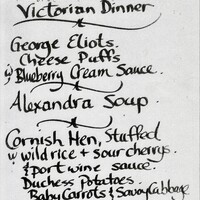 Victorian Dinner
George Eliots
Cheese Puffs
w/ Blueberry Cream Sauce.
Alexandra Soup.
Cornish Hen, Stuffed
w wild rice + sour cherrys
& port wine sauce.
Duchess Potatoes.
Baby Carrots & Savoy Cabbage